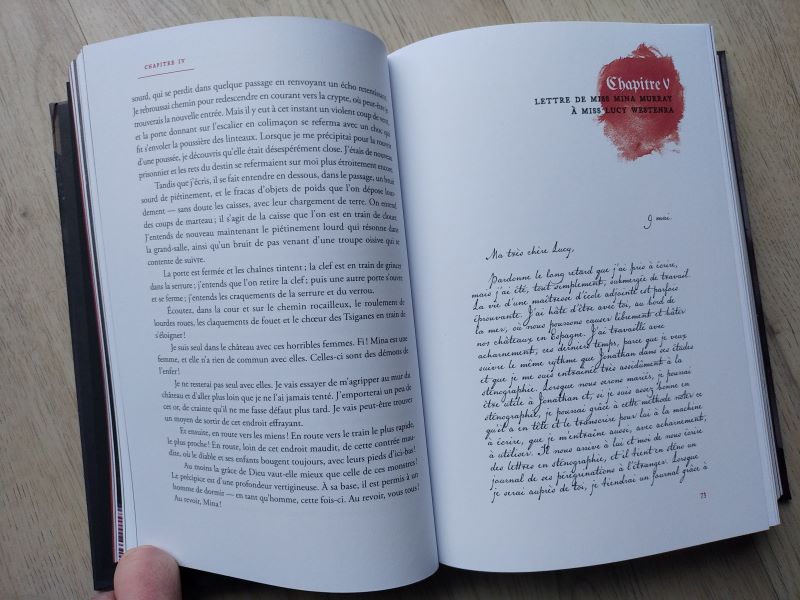 CHAPITRE IV
sourd, qui se perdit dans quelque passage en renvoyant un écho retentissant.
Je rebroussai chemin pour redescendre en courant vers la crypte, où peut-être je
trouverais la nouvelle entrée. Mais il y eut à cet instant un violent coup de vent,
et la porte donnant sur l'escalier en colimaçon se referma avec un choc qui
fit s'envoler la poussière des linteaux. Lorsque je me précipitai pour la rouvrir
d'une poussée, je découvris qu'elle était désespérément close. J'étais de nouveau
prisonnier et les rets du destin se refermaient sur moi plus étroitement encore.
Tandis que j'écris, il se fait entendre en dessous, dans le passage, un bruit
sourd de piétinement, et le fracas d'objets de poids que l'on dépose lour-
dement — sans doute les caisses, avec leur chargement de terre. On entend
des coups de marteau ; il s'agit de la caisse que l'on est en train de clouer.
J'entends de nouveau maintenant le piétinement lourd qui résonne dans
la grand-salle, ainsi qu'un bruit de pas venant d'une troupe oisive qui se
contente de suivre.
La porte est fermée et les chaînes tintent ; la clef est en train de grincer
dans la serrure ; j'entends que l'on retire la clef ; puis une autre porte s'ouvre
et se ferme ; j'entends les craquements de la serrure et du verrou.
Écoutez, dans la cour et sur le chemin rocailleux, le roulement de
lourdes roues, les claquements de fouet et le chœur des Tsiganes en train de
s'éloigner !
Je suis seul dans le château avec ces horribles femmes. Fi ! Mina est une
femme, et elle n'a rien de commun avec elles. Celles-ci sont des démons de
l'enfer !
Je ne resterai pas seul avec elles. Je vais essayer de m'agripper au mur du
château et d'aller plus loin que je ne l'ai jamais tenté. J'emporterai un peu de
cet or, de crainte qu'il ne me fasse défaut plus tard. Je vais peut-être trouver
un moyen de sortir de cet endroit effrayant.
Et ensuite, en route vers les miens ! En route vers le train le plus rapide,
le plus proche ! En route, loin de cet endroit maudit, de cette contrée mau-
dite, où le diable et ses enfants bougent toujours, avec leurs pieds d'ici-bas !
Au moins la grâce de Dieu vaut-elle mieux que celle de ces monstres !
Le précipice est d'une profondeur vertigineuse. À sa base, il est permis à un
homme de dormir — en tant qu'homme, cette fois-ci. Au revoir, vous tous !
Au revoir, Mina !
Chapitre V
LETTRE DE MISS MINA MURRAY
À MISS LUCY WESTENRA
9 mai.
Ma très chère Lucy,
Pardonne le long retard que j'ai pris à écrire,
mais j'ai été, tout simplement, submergée de travail.
La vie d'une maîtresse d'école adjointe est parfois
éprouvante. J'ai hâte d'être avec toi, au bord de
la mer, où nous pourrons causer librement et bâtir
nos châteaux en Espagne. J'ai travaillé avec
acharnement, ces derniers temps, parce que je veux
suivre le même rythme que Jonathan dans ses études
et que je me suis entraînée très assidûment à la
sténographie. Lorsque nous serons mariés, je pourrai
être utile à Jonathan et, si je suis assez bonne en
sténographie, je pourrai grâce à cette méthode noter ce
qu'il a en tête et le transcrire pour lui à la machine
à écrire, que je m'entraîne aussi, avec acharnement,
à utiliser. Il nous arrive à lui et moi de nous écrire
des lettres en sténographie, et il tient en sténo un
journal de ses pérégrinations à l'étranger. Lorsque
je serai auprès de toi, je tiendrai un journal grâce à
73